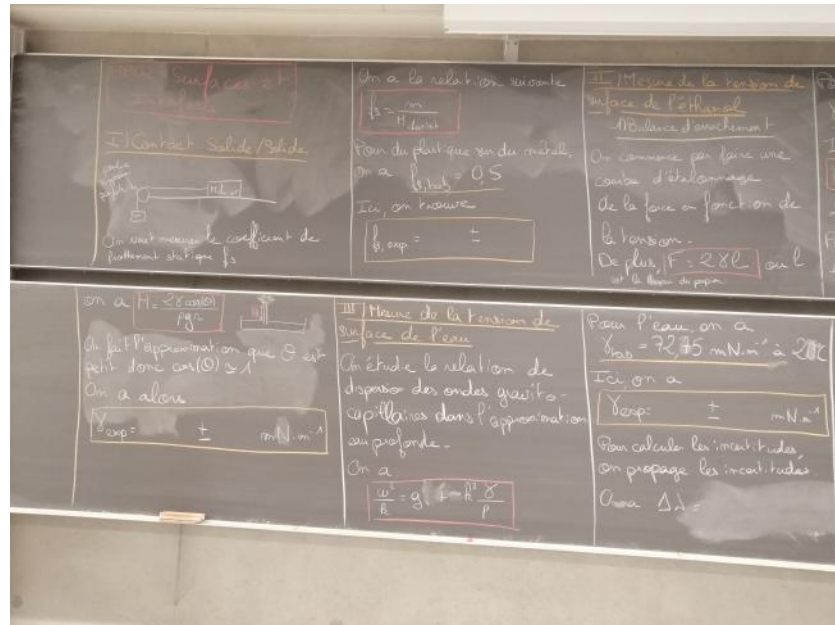 Surfaces et
Interfaces
I) Contact Solide/Solide
On veut mesurer le coefficient de
frottement statique fs
On a la relation suivante
fs = m
Pour du plastique sur du métal,
on a fs,tab = 0,5
Ici, on trouve
fs,exp = ±
II) Mesure de la tension de
surface de l'éthanol
1) Balance d'arrachement
On commence par faire une
courbe d'étalonnage
de la force en fonction de
la tension.
De plus, F = 2γl où l
est la du papier
on a H = 2γcos(θ)/ρgr
On fait l'approximation que θ est
petit donc cos(θ) ≃ 1
On a alors
γexp = ± mN.m⁻¹
III) Mesure de la tension de
surface de l'eau
On étudie la relation de
dispersion des ondes gravito-
capillaires dans l'approximation
eau profonde.
On a
ω²/k = g + k² γ/ρ
Pour l'eau, on a
γtab = 72,75 mN.m⁻¹ à
Ici, on a
γexp = ± mN.m⁻¹
Pour calculer les incertitudes,
on propage les incertitudes
On a Δλ =